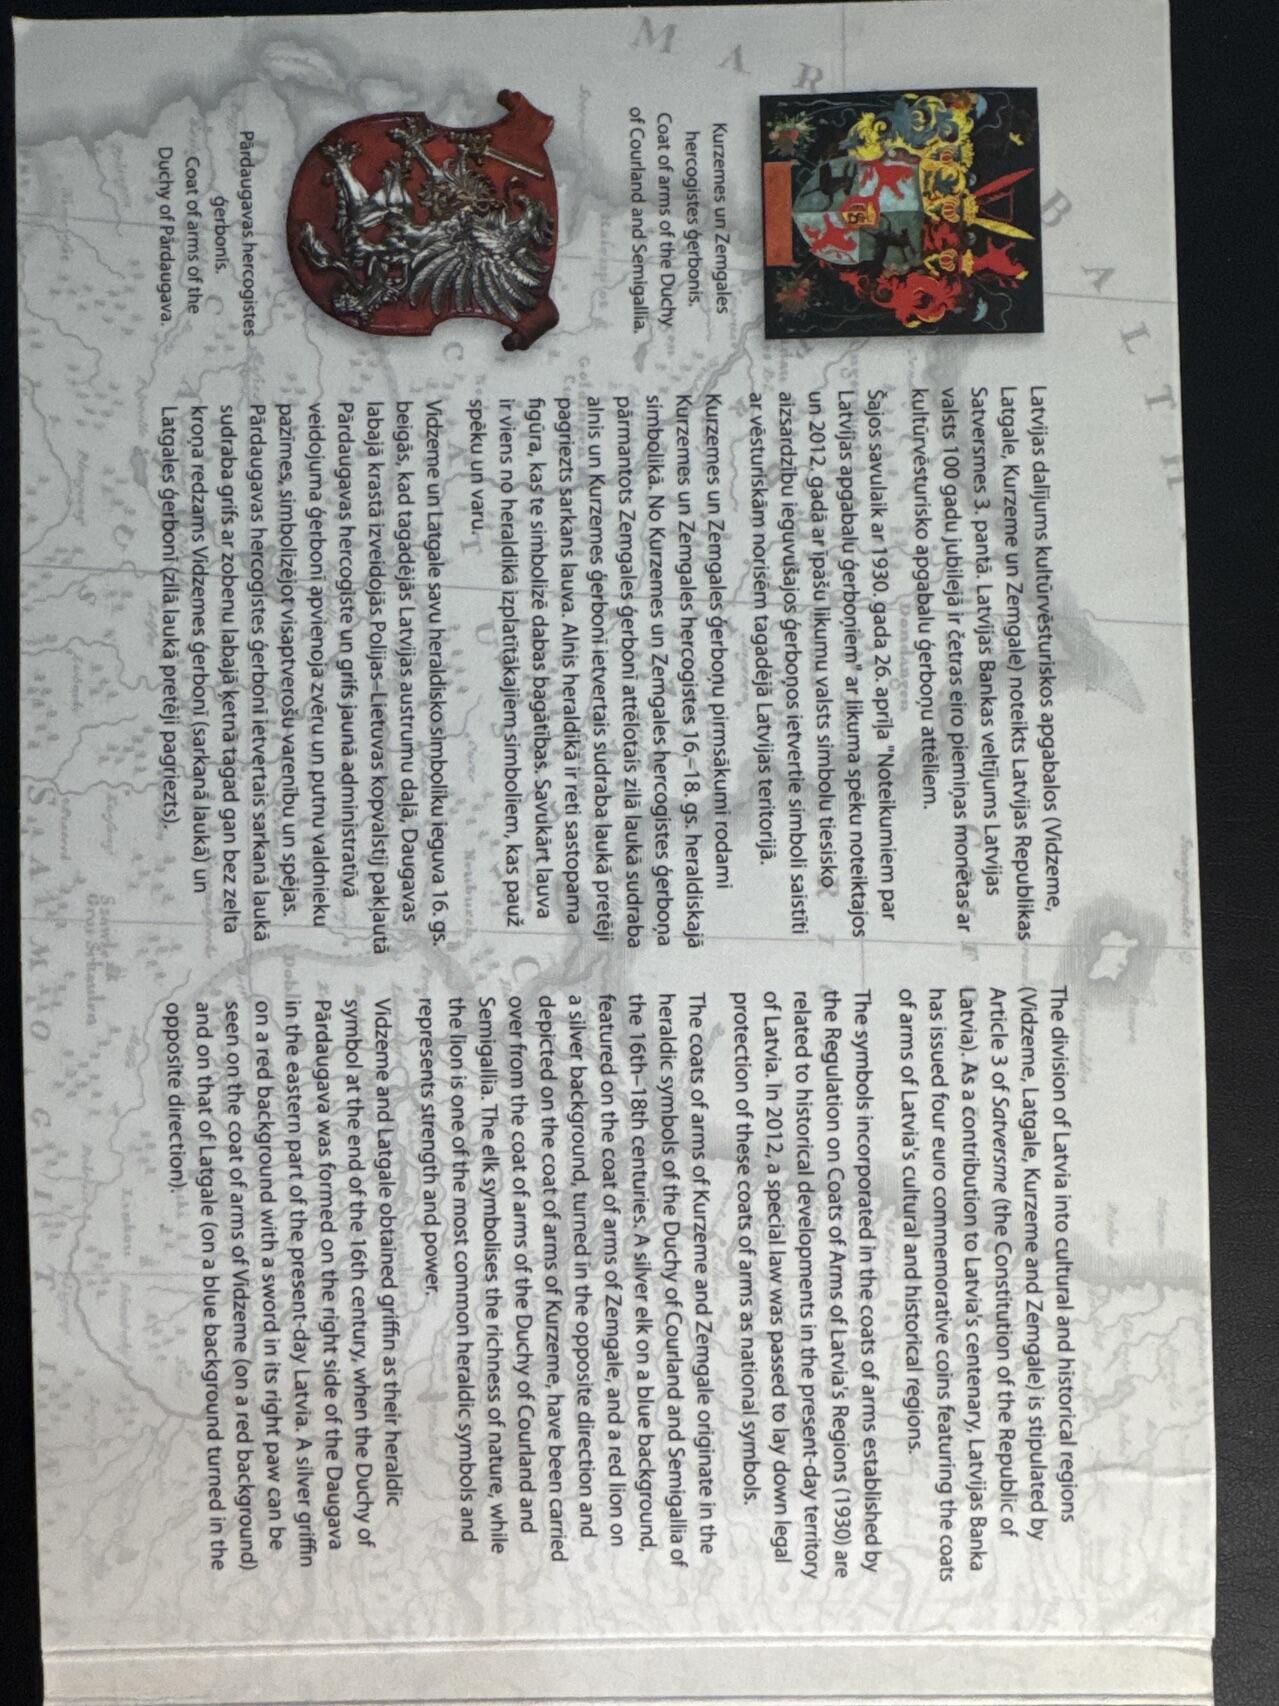 Kurzemes un Zemgales
hercogistes ģerbonis.
Coat of arms of the Duchy
of Courland and Semigallia.
Pārdaugavas hercogistes
ģerbonis.
Coat of arms of the
Duchy of Pārdaugava.
Latvijas dalījums kultūrvēsturiskos apgabalos (Vidzeme,
Latgale, Kurzeme un Zemgale) noteikts Latvijas Republikas
Satversmes 3. pantā. Latvijas Bankas veltījums Latvijas
valsts 100 gadu jubilejā ir četras eiro piemiņas monētas ar
kultūrvēsturisko apgabalu ģerboņu attēliem.
Šajos savulaik ar 1930. gada 26. aprīļa "Noteikumiem par
Latvijas apgabalu ģerboņiem" ar likuma spēku noteiktajos
un 2012. gadā ar īpašu likumu valsts simbolu tiesisko
aizsardzību ieguvušajos ģerboņos ietvertie simboli saistīti
ar vēsturiskām norisēm tagadējā Latvijas teritorijā.
Kurzemes un Zemgales ģerboņu pirmsākumi rodami
Kurzemes un Zemgales hercogistes 16.–18. gs. heraldiskajā
simbolikā. No Kurzemes un Zemgales hercogistes ģerboņa
pārmantots Zemgales ģerbonī attēlotais zilā laukā sudraba
alnis un Kurzemes ģerbonī ietvertais sudraba laukā pretēji
pagriezts sarkans lauva. Alnis heraldikā ir reti sastopama
figūra, kas te simbolizē dabas bagātības. Savukārt lauva
ir viens no heraldikā izplatītākajiem simboliem, kas pauž
spēku un varu.
Vidzeme un Latgale savu heraldisko simboliku ieguva 16. gs.
beigās, kad tagadējās Latvijas austrumu daļā, Daugavas
labajā krastā izveidojās Polijas–Lietuvas kopvalstij pakļautā
Pārdaugavas hercogiste un grifs jaunā administratīvā
veidojuma ģerbonī apvienoja zvēru un putnu valdnieku
pazīmes, simbolizējot visaptverošu varenību un spējas.
Pārdaugavas hercogistes ģerbonī ietvertais sarkanā laukā
sudraba grifs ar zobenu labajā ķetnā tagad gan bez zelta
kroņa redzams Vidzemes ģerbonī (sarkanā laukā) un
Latgales ģerbonī (zilā laukā pretēji pagriezts).
The division of Latvia into cultural and historical regions
(Vidzeme, Latgale, Kurzeme and Zemgale) is stipulated by
Article 3 of Satversme (the Constitution of the Republic of
Latvia). As a contribution to Latvia's centenary, Latvijas Banka
has issued four euro commemorative coins featuring the coats
of arms of Latvia's cultural and historical regions.
The symbols incorporated in the coats of arms established by
the Regulation on Coats of Arms of Latvia's Regions (1930) are
related to historical developments in the present-day territory
of Latvia. In 2012, a special law was passed to lay down legal
protection of these coats of arms as national symbols.
The coats of arms of Kurzeme and Zemgale originate in the
heraldic symbols of the Duchy of Courland and Semigallia of
the 16th–18th centuries. A silver elk on a blue background,
featured on the coat of arms of Zemgale, and a red lion on
a silver background, turned in the opposite direction and
depicted on the coat of arms of Kurzeme, have been carried
over from the coat of arms of the Duchy of Courland and
Semigallia. The elk symbolises the richness of nature, while
the lion is one of the most common heraldic symbols and
represents strength and power.
Vidzeme and Latgale obtained griffin as their heraldic
symbol at the end of the 16th century, when the Duchy of
Pārdaugava was formed on the right side of the Daugava
in the eastern part of the present-day Latvia. A silver griffin
on a red background with a sword in its right paw can be
seen on the coat of arms of Vidzeme (on a red background)
and on that of Latgale (on a blue background turned in the
opposite direction).